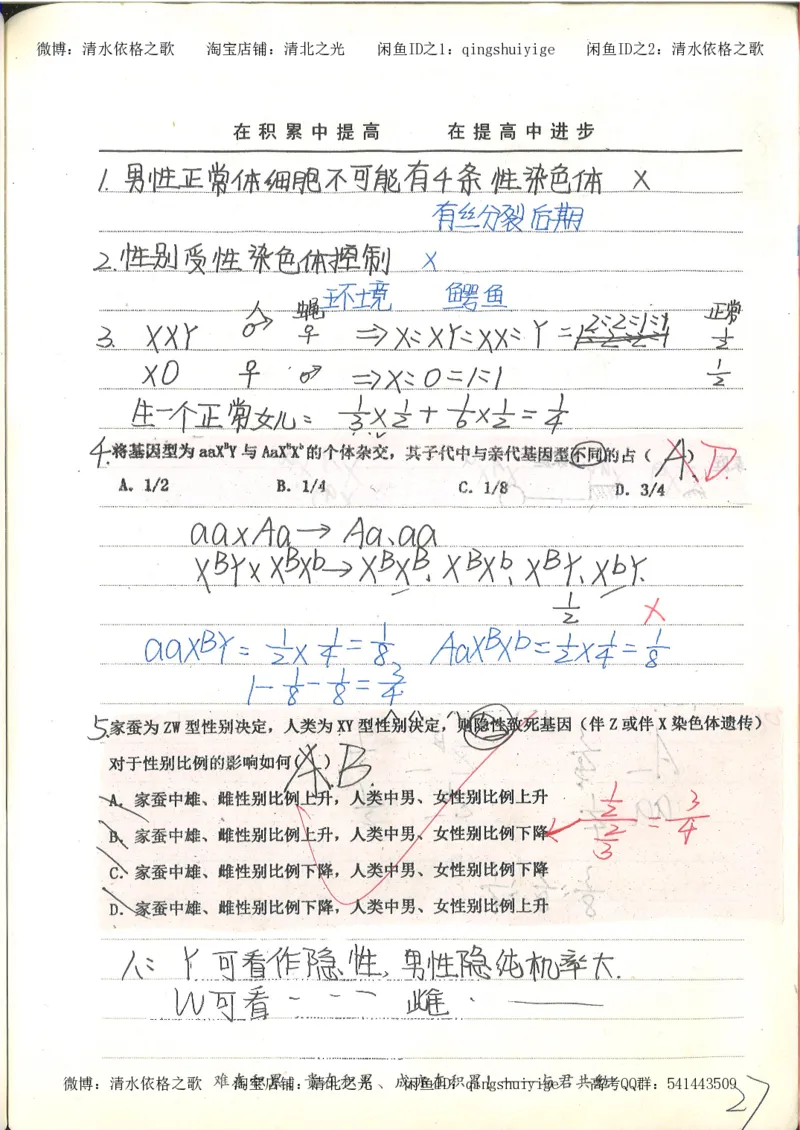 微博：清水依格之歌 淘宝店铺：清北之光 闲鱼ID之1：qingshuiyige 闲鱼ID之2：清水依格之歌
在积累中提高 在提高中进步
1. 男性正常体细胞不可能有4条性染色体 ×
有丝分裂后期
2. 性别受性染色体控制 ×
环境 鳄鱼
人 蝇 正常
3. XXY ♂ ♀ ⇒ X:XY:XX:Y = 1:2:2:1:1 1/2
XO ♀ ♂ ⇒ X:O=1:1 1/2
生一个正常女儿: 1/3×1/2+1/6×1/2=1/4
4. 将基因型为 aaXᴮY 与 AaXᴮXᵇ 的个体杂交，其子代中与亲代基因型不同的占（ A ）D.
A. 1/2 B. 1/4 C. 1/8 D. 3/4
aa×Aa→Aa、aa
XᴮY×XᴮXᵇ→XᴮXᴮ、XᴮXᵇ、XᴮY、XᵇY.
1/2 ×
aaXᴮY=1/2×1/4=1/8 AaXᴮXᵇ=1/2×1/4=1/8
1-1/8-1/8=3/4
5. 家蚕为 ZW 型性别决定，人类为 XY 型性别决定，则隐性致死基因（伴 Z 或伴 X 染色体遗传）
对于性别比例的影响如何（ A ）B.
A. 家蚕中雄、雌性别比例上升，人类中男、女性别比例上升
B. 家蚕中雄、雌性别比例上升，人类中男、女性别比例下降 1/2 / 2/3 = 3/4
C. 家蚕中雄、雌性别比例下降，人类中男、女性别比例下降
D. 家蚕中雄、雌性别比例下降，人类中男、女性别比例上升
人: Y可看作隐性, 男性隐纯机率大.
W可看 - - - 雌 . ——
微博：清水依格之歌 淘宝店铺：清北之光 闲鱼ID：qingshuiyige 高考QQ群：541443509
27